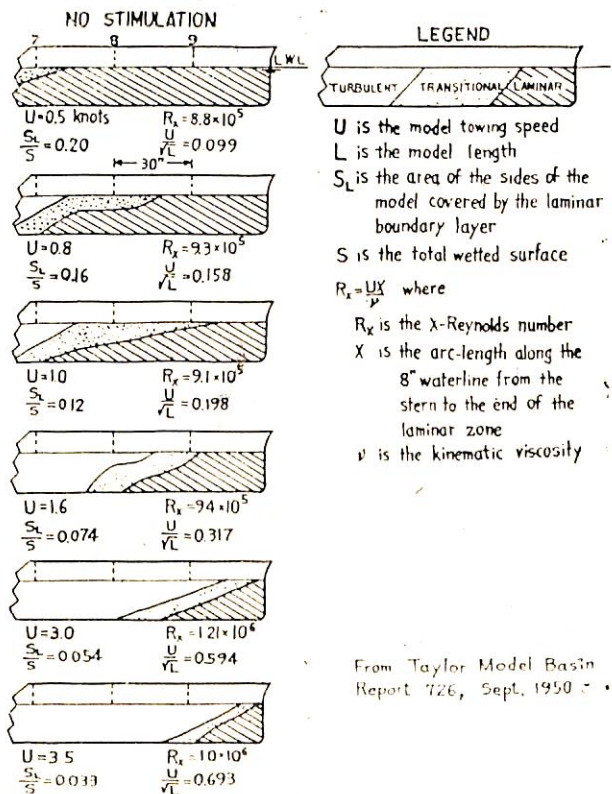 NO STIMULATION
7 8 9
LWL
U=0.5 knots Rx=8.8×10⁵
SL/S=0.20 U/√L=0.099
30"
U=0.8 Rx=9.3×10⁵
SL/S=0.16 U/√L=0.158
U=1.0 Rx=9.1×10⁵
SL/S=0.12 U/√L=0.198
U=1.6 Rx=9.4×10⁵
SL/S=0.074 U/√L=0.317
U=3.0 Rx=1.21×10⁶
SL/S=0.054 U/√L=0.594
U=3.5 Rx=1.0×10⁶
SL/S=0.033 U/√L=0.693
LEGEND
TURBULENT TRANSITIONAL LAMINAR
U is the model towing speed
L is the model length
SL is the area of the sides of the
model covered by the laminar
boundary layer
S is the total wetted surface
Rx=UX/ν where
Rx is the X-Reynolds number
X is the arc-length along the
8" waterline from the
stern to the end of the
laminar zone
ν is the kinematic viscosity
From Taylor Model Basin
Report 726, Sept. 1950